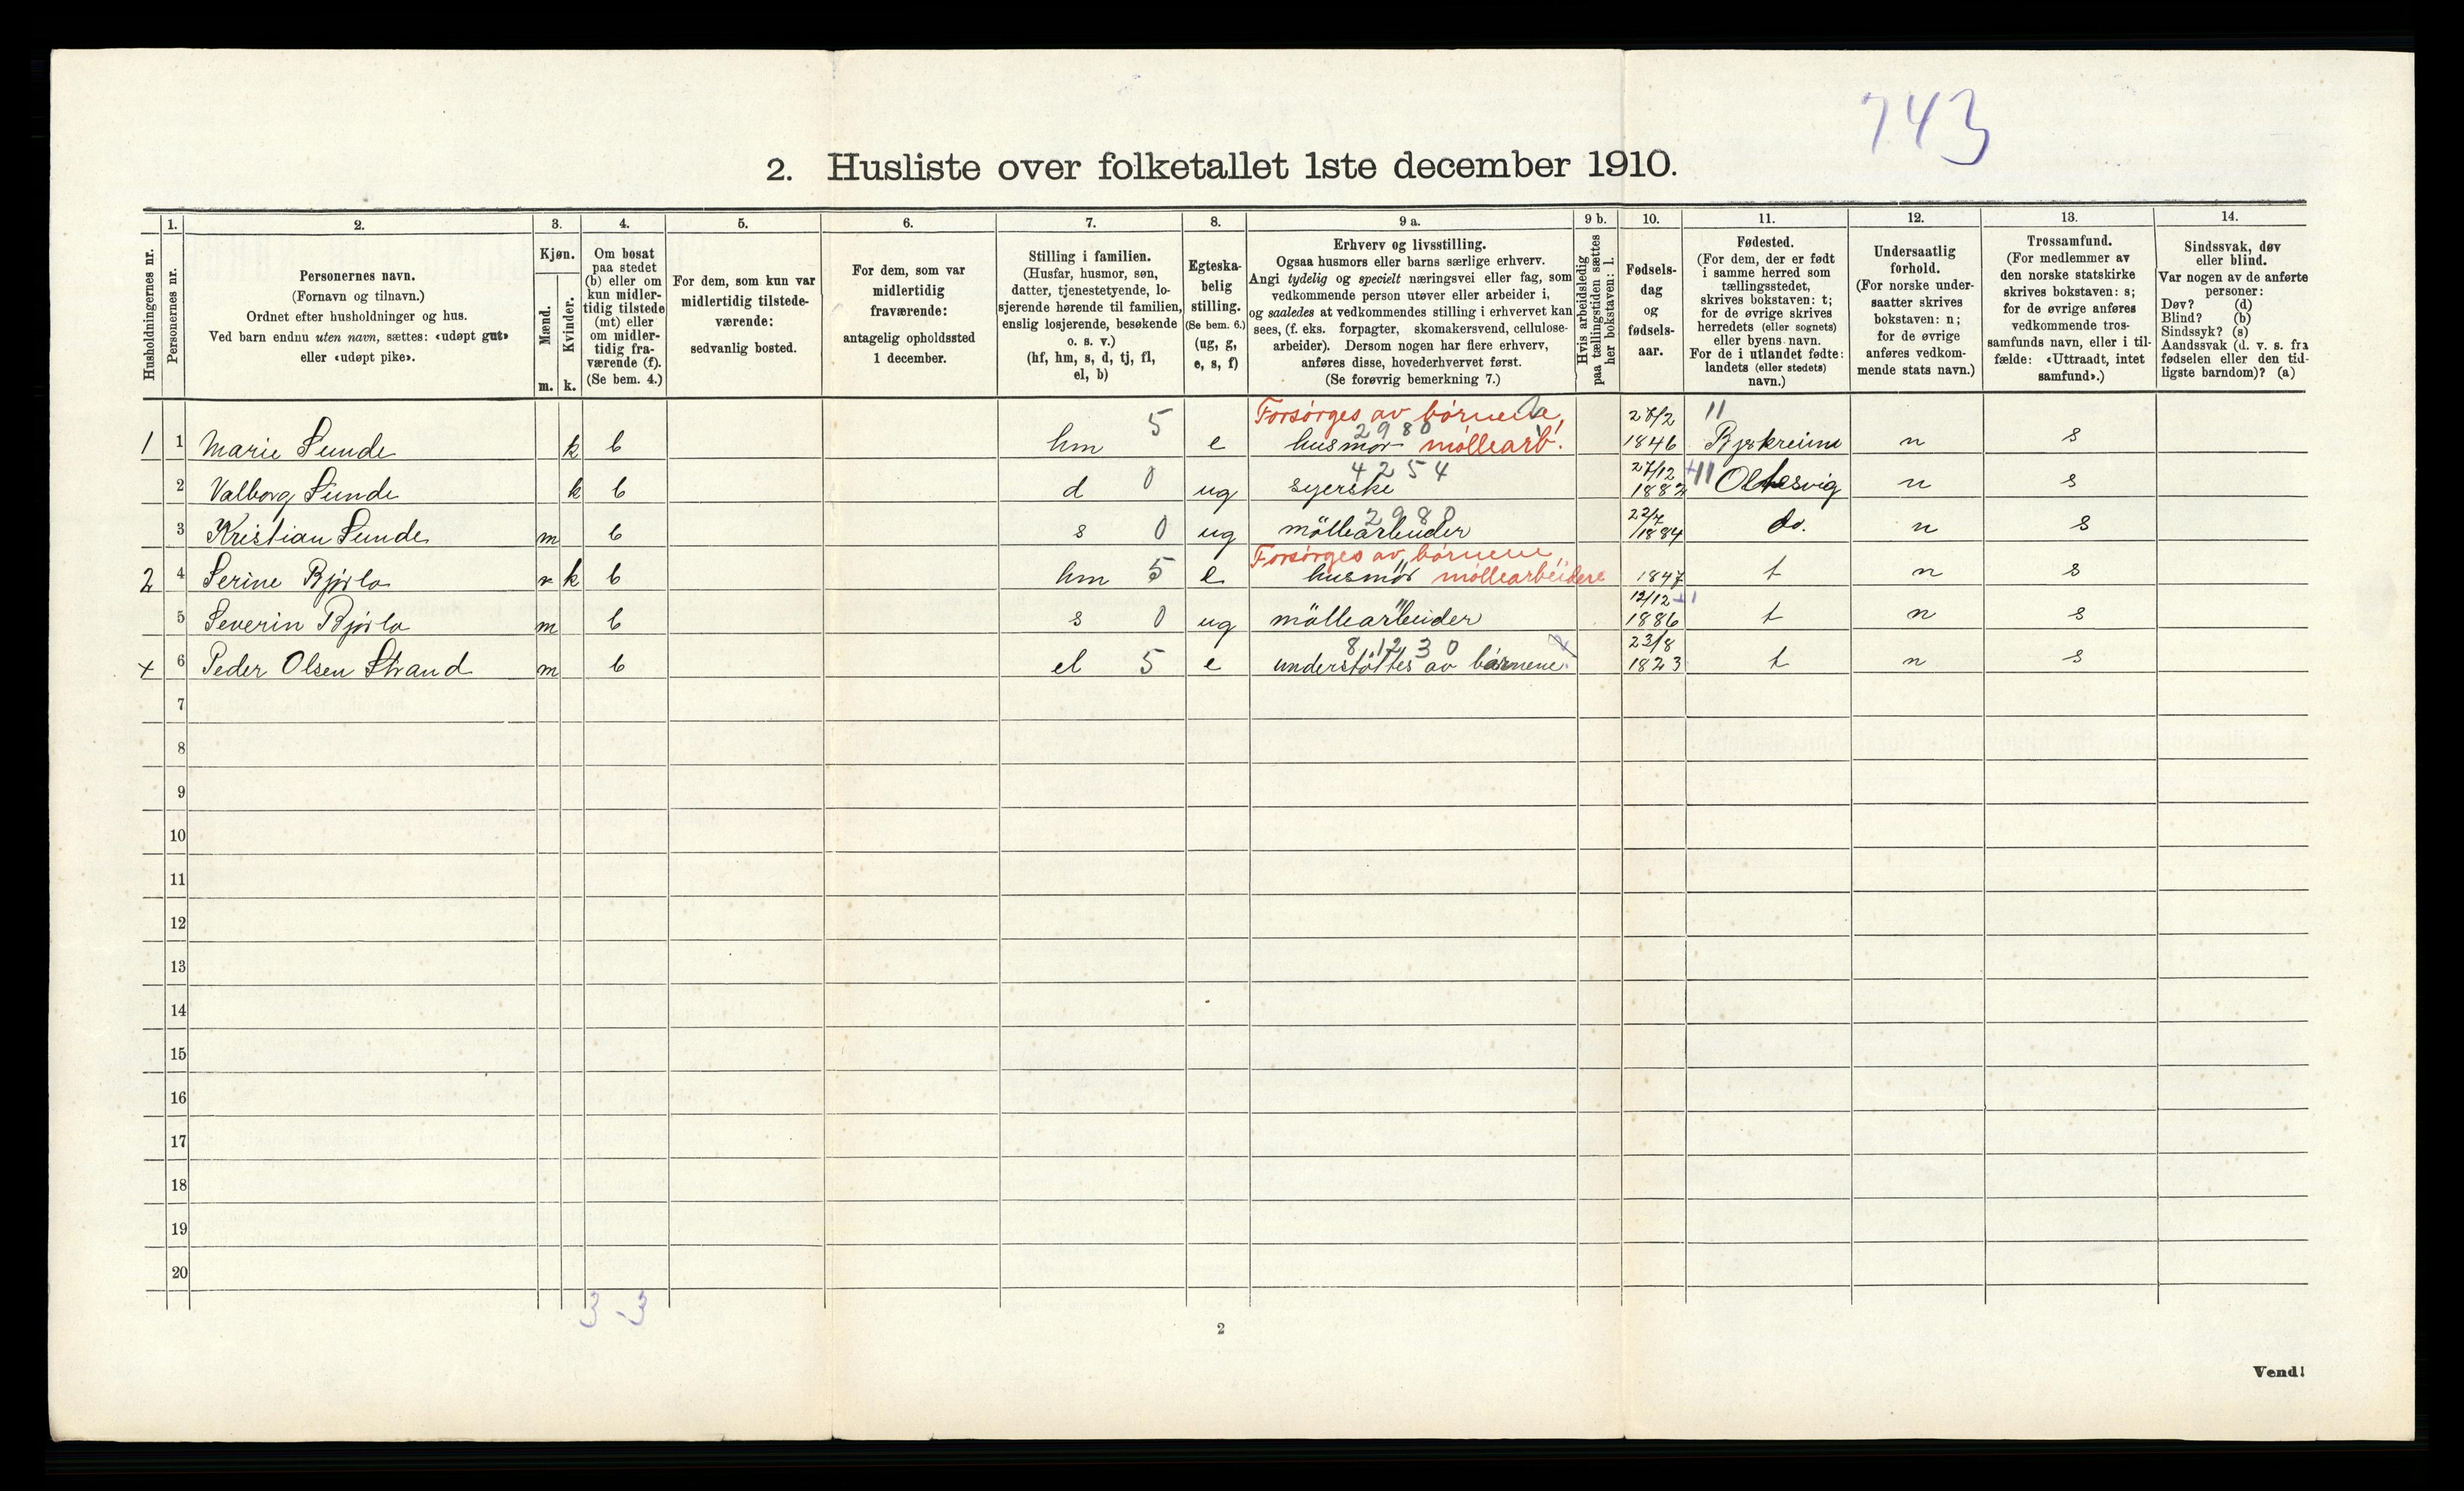 743
2. Husliste over folketallet 1ste december 1910.
Husholdningernes nr.
1. Personernes nr.
2. Personernes navn.
(Fornavn og tilnavn.)
Ordnet efter husholdninger og hus.
Ved barn endnu uten navn, sættes: «udøpt gut»
eller «udøpt pike».
3. Kjøn.
Mænd. m.
Kvinder. k.
4. Om bosat
paa stedet
(b) eller om
kun midler-
tidig tilstede
(mt) eller
om midler-
tidig fra-
værende (f).
(Se bem. 4.)
5. For dem, som kun var
midlertidig tilstede-
værende:
sedvanlig bosted.
6. For dem, som var
midlertidig
fraværende:
antagelig opholdssted
1 december.
7. Stilling i familien.
(Husfar, husmor, søn,
datter, tjenestetyende, lo-
sjerende hørende til familien,
enslig losjerende, besøkende
o. s. v.)
(hf, hm, s, d, tj, fl,
el, b)
8. Egteska-
belig
stilling.
(Se bem. 6.)
(ug, g,
e, s, f)
9 a. Erhverv og livsstilling.
Ogsaa husmors eller barns særlige erhverv.
Angi tydelig og specielt næringsvei eller fag, som
vedkommende person utøver eller arbeider i,
og saaledes at vedkommendes stilling i erhvervet kan
sees, (f. eks. forpagter, skomakersvend, cellulose-
arbeider). Dersom nogen har flere erhverv,
anføres disse, hovederhvervet først.
(Se forøvrig bemerkning 7.)
9 b. Hvis arbeidsledig
paa tællingstiden sættes
her bokstaven: l.
10. Fødsels-
dag
og
fødsels-
aar.
11. Fødested.
(For dem, der er født
i samme herred som
tællingsstedet,
skrives bokstaven: t;
for de øvrige skrives
herredets (eller sognets)
eller byens navn.
For de i utlandet fødte:
landets (eller stedets)
navn.)
12. Undersaatlig
forhold.
(For norske under-
saatter skrives
bokstaven: n;
for de øvrige
anføres vedkom-
mende stats navn.)
13. Trossamfund.
(For medlemmer av
den norske statskirke
skrives bokstaven: s;
for de øvrige anføres
vedkommende tros-
samfunds navn, eller i til-
fælde: «Uttraadt, intet
samfund».)
14. Sindssvak, døv
eller blind.
Var nogen av de anførte
personer:
Døv? (d)
Blind? (b)
Sindssyk? (s)
Aandssvak (d. v. s. fra
fødselen eller den tid-
ligste barndom)? (a)
Forsørges av børnene, 27/2 11
1 1 Marie Sunde k b hm 5 e husmor 2980 møllearb. 1846 Bjerkreim n s
2 Valborg Sunde k b d 0 ug 4254 syerske 27/12 1882 11 Oltesvig n s
3 Kristian Sunde m b s 0 ug 2980 møllearbeider 22/7 1884 do. n s
Forsørges av børnene,
2 4 Serine Bjørlo k b hm 5 e husmor " møllearbeidere 1847 t n s
5 Severin Bjørlo m b s 0 ug " møllearbeider 12/12 1886 t n s
x 6 Peder Olsen Strand m b el 5 e 8,12,30 understøttes av børnene. 23/8 1823 t n s
7
8
9
10
11
12
13
14
15
16
17
18
19
20
3 - 3
2
Vend!